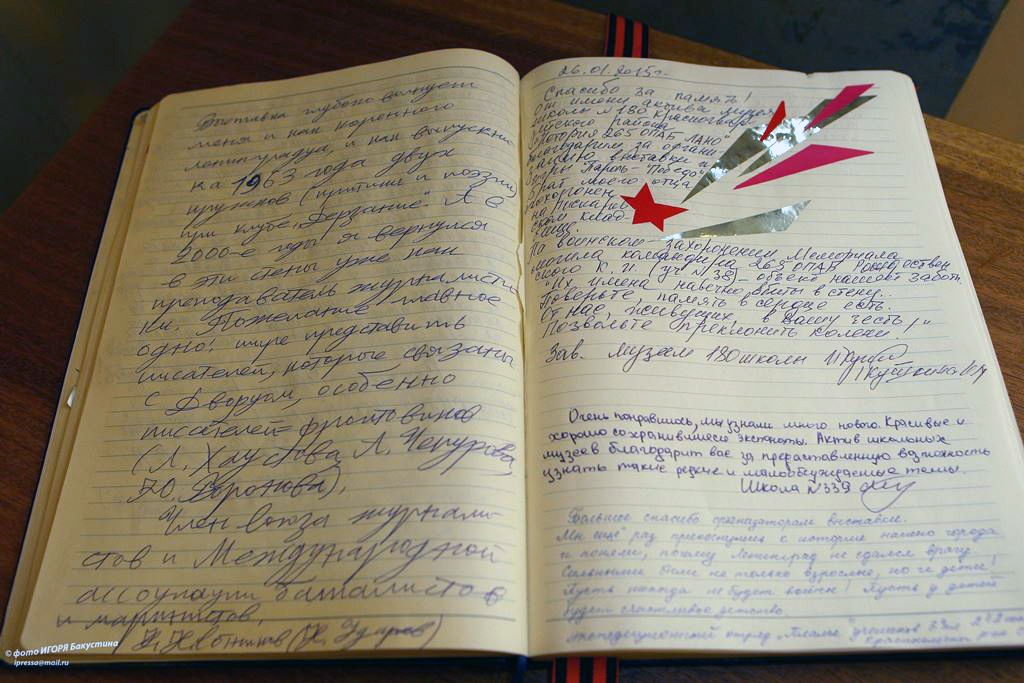 Выставка глубоко волнует
меня и как коренного
ленинградца, и как выпускни
ка 1963 года двух
кружков (критики и поэзии)
при клубе „Дерзание". А в
2000-е годы я вернулся
в эти стены уже как
преподаватель журналисти
ки. Пожелание главное
одно: шире представить
писателей, которые связаны
с Дворцом, особенно
писателей-фронтовиков
(Л. Хаустова, Л. Чепурова,
Ю. Воронова).
Член союза журнали-
стов и Международной
ассоциации баталистов
и маринистов,
26.01.2015г.
Спасибо за память!
От имени актива музея
школы №180 Красногвар
дейского района
"История 265 ОПАБ ЛАНО"
благодарим за органи
зацию выставки и
игры "Пароль-Победа"
Брат моего отца
похоронен
на Пискарев
ском клад-
бище.
На воинском захоронении Мемориала
могила командира 265 ОПАБ Рождествен
ского К.И. (уч №38) - объект нашей заботы
"Их имена навечно вбиты в стену...
Поверьте, память в сердце есть.
От нас, живущих, в вашу честь
Позвольте преклонить колени!"
Зав. музеем 180 школы
Очень понравилось, мы узнали много нового. Красивые и
хорошо сохранившиеся экспонаты. Актив школьных
музеев благодарит вас за предоставленную возможность
узнать такие редкие и малообсуждаемые темы.
Школа №339
Большое спасибо организаторам выставки.
Мы ещё раз прикоснулись к истории нашего города
и поняли, почему Ленинград не сдался врагу
Сильными были не только взрослые, но и дети!
Пусть никогда не будет войны! Пусть у детей
будет счастливое детство.
Экспедиционный отряд "Пламя"
© фото ИГОРЯ Бакустина
ipressa@mail.ru